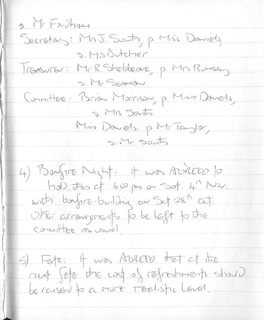 s. Mr Fordham
Secretary: Mrs J. Souts, p. Miss Daniels,
s. Mrs Butcher
Treasurer: Mr R. Shebbeare, p. Mrs Rumsey
s. Mr Seaman
Committee: Brian Morrison, p. Miss Daniels,
s. Mrs Souts
Miss Daniels. p. Mr Taylor,
s. Mr Souts
4) Bonfire Night: it was AGREED to
hold this at 6.00 pm on Sat. 4th Nov.
with bonfire-building on Sat 28th Oct.
Other arrangements to be left to the
committee as usual.
5) Fete: it was AGREED that at the
next fete the cost of refreshments should
be raised to a more realistic level.